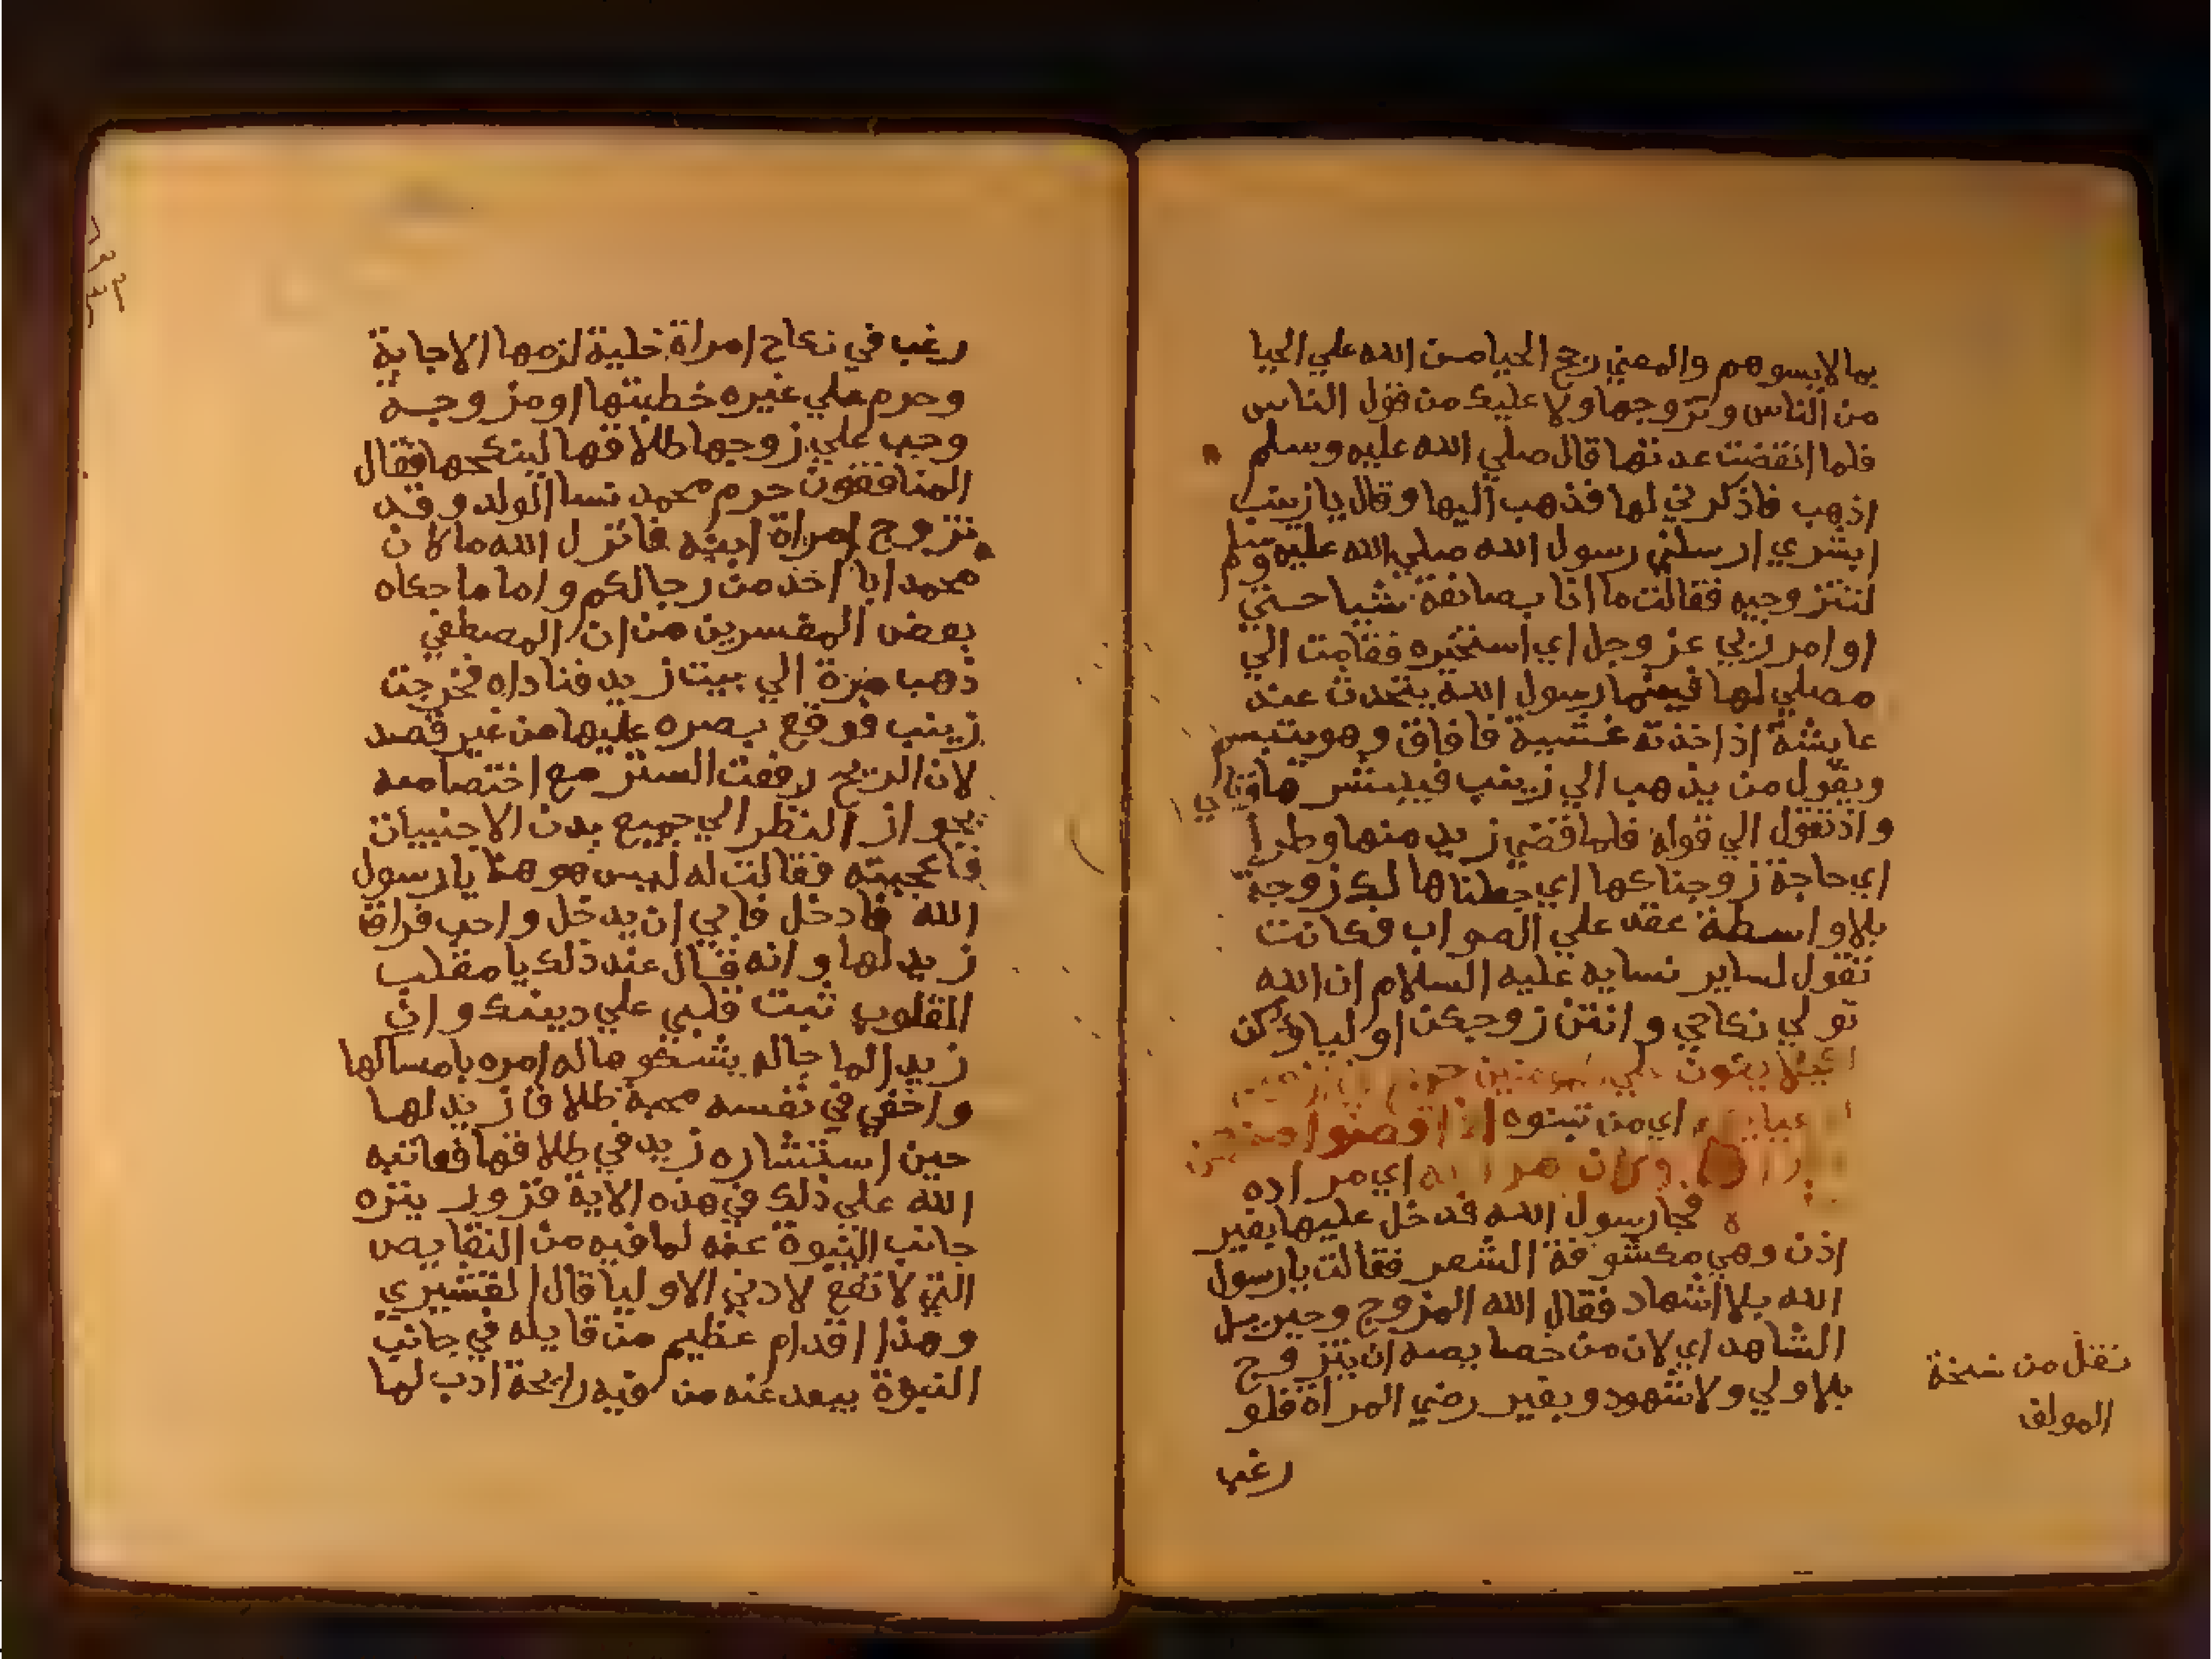 بما لا يسوهم والمعني رجح الحيا من الله علي الحيا
من الناس وتزوجها ولا عليك من قول الناس
فلما انقضت عدتها قال صلي الله عليه وسلم
اذهب فاذكرني لها فذهب اليها وقال يا زينب
ابشري ارسلني رسول الله صلي الله عليه وسلم
لتتزوجيه فقالت ما انا بصانعة شيا حتي
اوامر ربي عز وجل اي استخيره فقامت الي
مصلي لها فبينما رسول الله يتحدث عند
عايشة اذ اخذته غشية فافاق وهو يتبسم
ويقول من يذهب الي زينب فيبشرها
واذ تقول الي قوله فلما قضي زيد منها وطرا
اي حاجة زوجناكها اي جعلناها لك زوجة
بلا واسطة عقد علي الصواب فكانت
تقول لساير نسايه عليه السلام ان الله
تولي نكاحي وانتن زوجكن اولياوكن
لكيلا يكون علي المومنين حرج
اي من تبنوه اذا قضوا منهن
وكان امر الله اي مراده
فجا رسول الله فدخل عليها بغير
اذن وهي مكشوفة الشعر فقالت يا رسول
الله بلا اشهاد فقال الله المزوج وجبريل
الشاهد اي لان من خصايصه ان يتزوج
بلا ولي ولا شهود وبغير رضي المراة فلو
رغب
نقل من نسخة
المولف
رغب في نكاح امراة خلية لزمها الاجابة
وحرم علي غيره خطبتها او مزوجة
وجب علي زوجها طلاقها لينكحها فقال
المنافقون حرم محمد نسا الولد وقد
تزوج امراة ابنه فانزل الله ما كان
محمد ابا احد من رجالكم واما ما حكاه
بعض المفسرين من ان المصطفي
ذهب مرة الي بيت زيد فناداه فخرجت
زينب فوقع بصره عليها من غير قصد
لان الريح رفعت الستر مع اختصاصه
بجواز النظر الي جميع بدن الاجنبيات
فاعجبته فقالت له ليس هو هنا يا رسول
الله فادخل فابي ان يدخل واحب فراق
زيد لها وانه قال عند ذلك يا مقلب
القلوب ثبت قلبي علي دينك وان
زيدا لما جا له يشكو ماله امره بامساكها
واخفي في نفسه محبة طلاق زيد لها
حين استشاره زيد في طلاقها فعاتبه
الله علي ذلك في هذه الاية فزور ينزه
جانب النبوة عنه لما فيه من النقايص
التي لا تقع لادني الاوليا قال القشيري
وهذا اقدام عظيم من قايله في جانب
النبوة يبعد عنه من فيه رايحة ادب لها